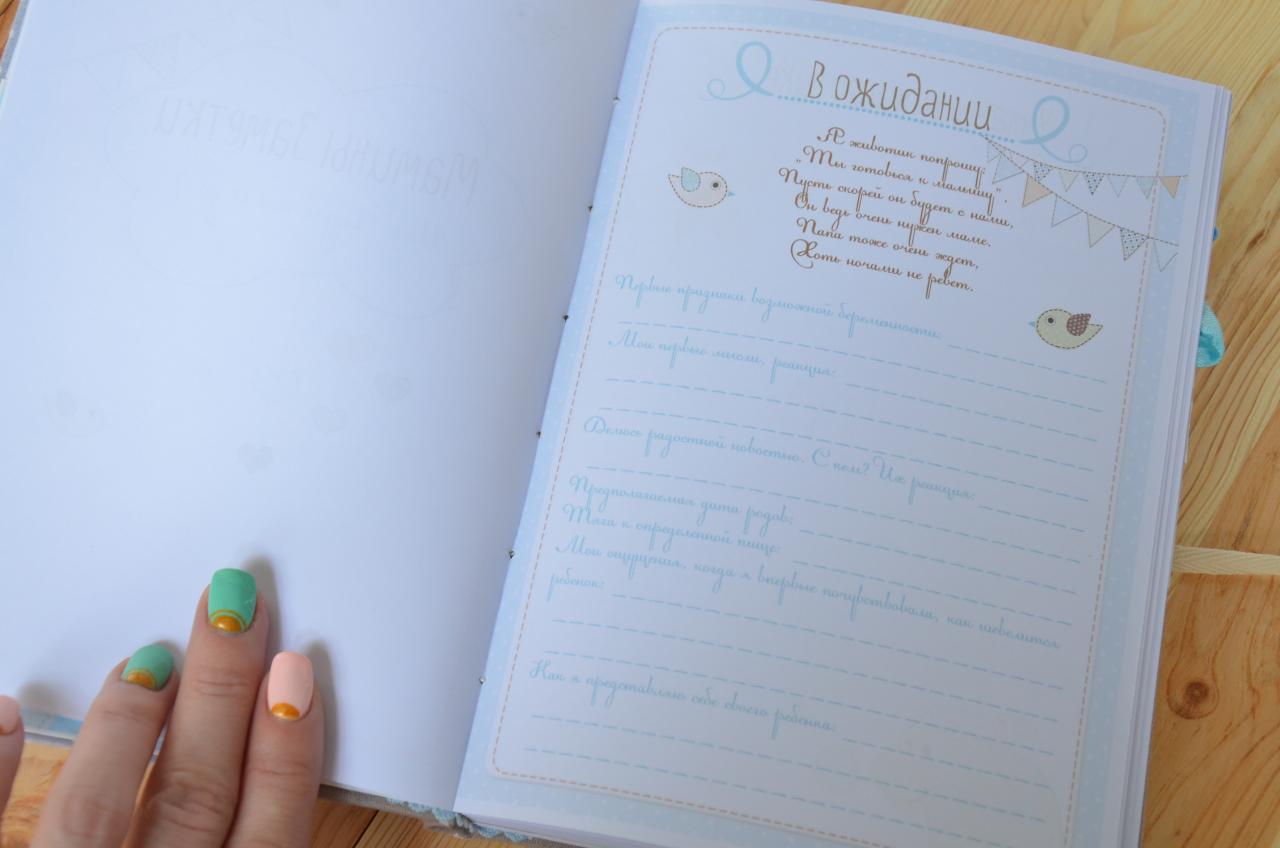 Мамины заметки
В ожидании
Я животик попрошу:
„Ты готовься к малышу".
Пусть скорей он будет с нами,
Он ведь очень нужен маме.
Папа тоже очень ждет,
Хоть ночами не ревет.
Первые признаки возможной беременности:
Мои первые мысли, реакция:
Делюсь радостной новостью. С кем? Их реакция:
Предполагаемая дата родов:
Тяга к определенной пище:
Мои ощущения, когда я впервые почувствовала, как шевелится
ребенок:
Как я представляю себе своего ребенка: